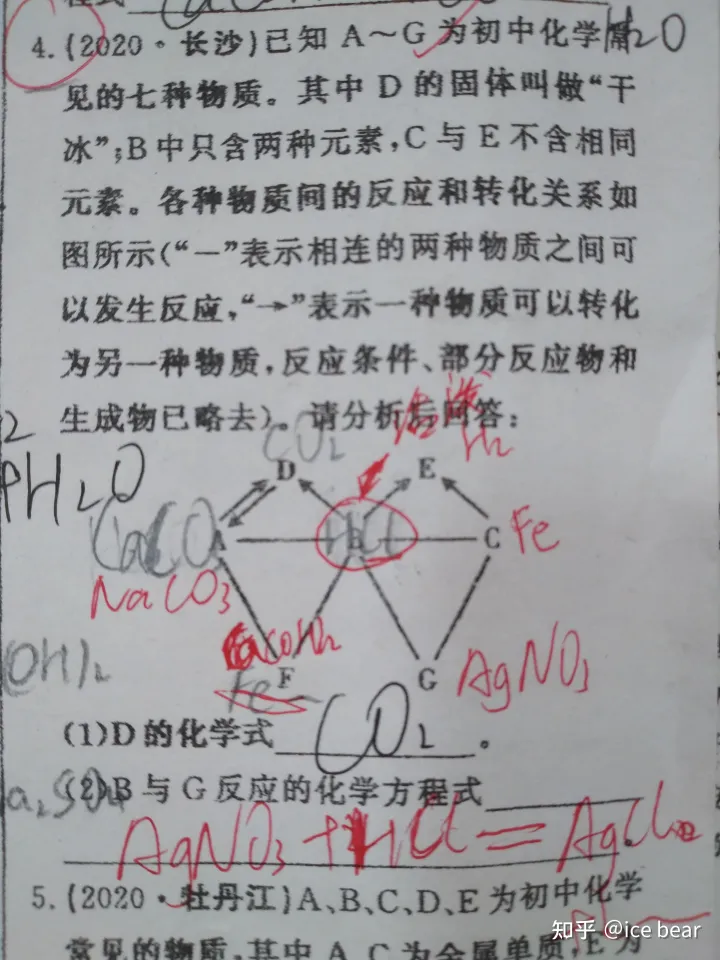 程式
4.(2020·长沙)已知 A～G 为初中化学常
H₂O
见的七种物质。其中 D 的固体叫做“干
冰”;B 中只含两种元素,C 与 E 不含相同
元素。各种物质间的反应和转化关系如
图所示(“—”表示相连的两种物质之间可
以发生反应,“→”表示一种物质可以转化
为另一种物质,反应条件、部分反应物和
生成物已略去)。请分析后回答:
CO₂
H₂
D E
H₂O
A B C Fe
HCl
NaCO₃
F G AgNO₃
Fe
(OH)₂
(1)D 的化学式 CO₂ 。
(2)B 与 G 反应的化学方程式
AgNO₃+HCl=AgCl
5.(2020·牡丹江)A、B、C、D、E 为初中化学
常见的物质,其中 A、C 为金属单质,E 为
知乎 @ice bear